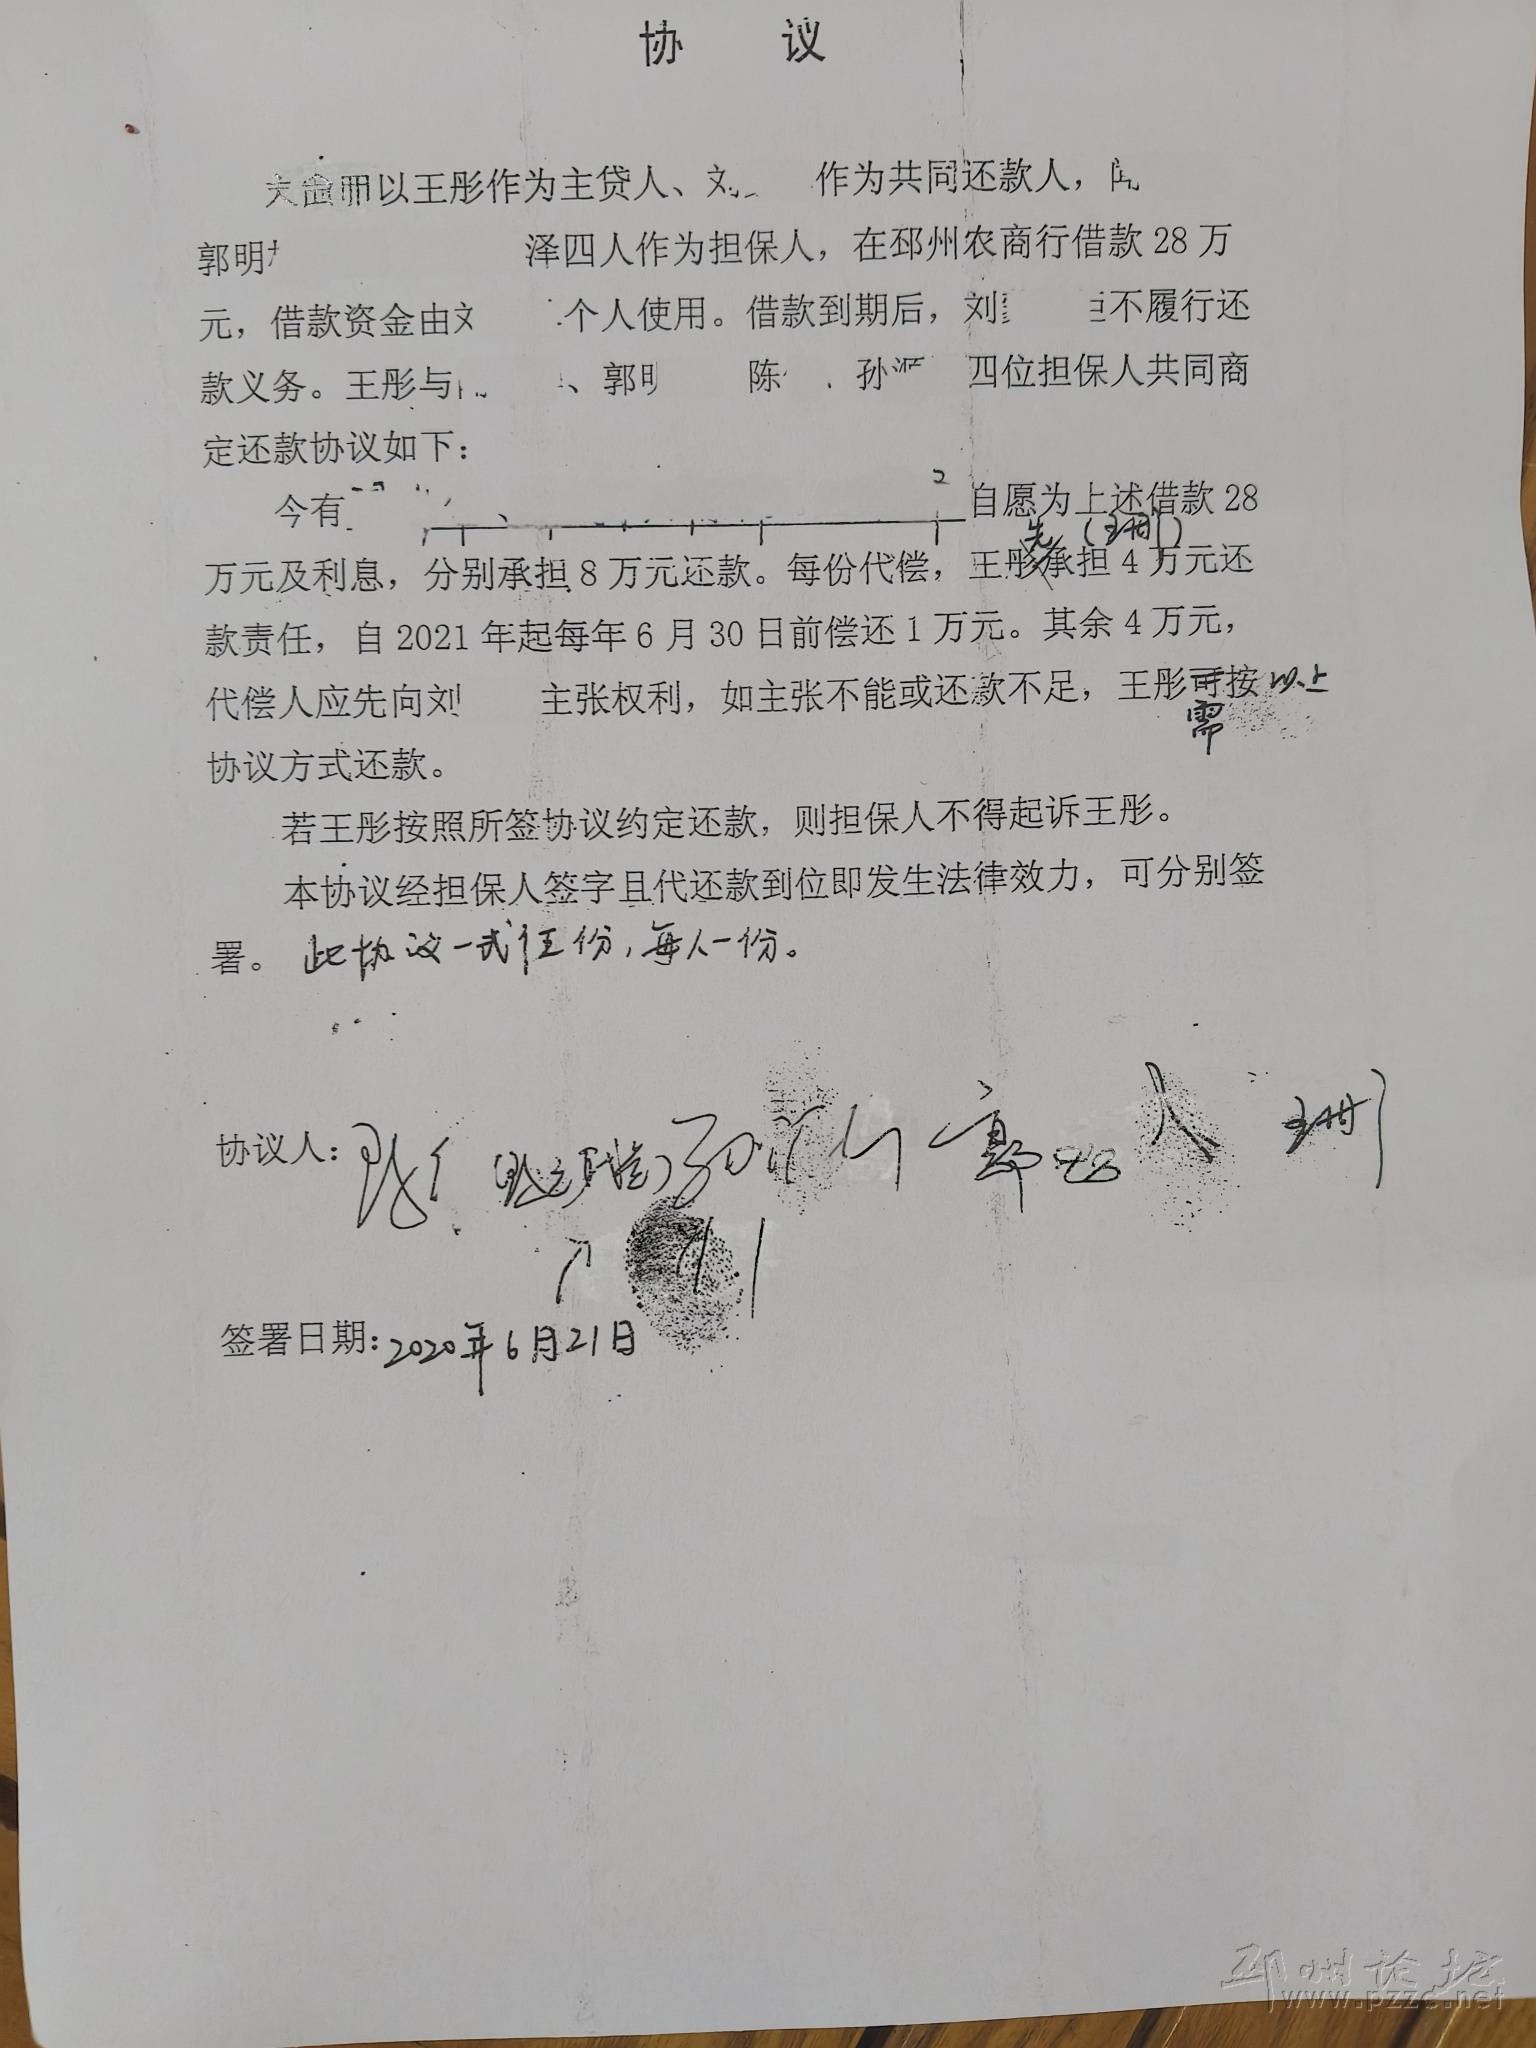 协 议
以王彤作为主贷人、刘 作为共同还款人，
郭明 泽四人作为担保人，在邳州农商行借款 28 万
元，借款资金由刘 个人使用。借款到期后，刘 不履行还
款义务。王彤与 、郭明 陈 孙 四位担保人共同商
定还款协议如下：
今有 自愿为上述借款 28
先 (王彤)
万元及利息，分别承担 8 万元还款。每份代偿，王彤承担 4 万元还
款责任，自 2021 年起每年 6 月 30 日前偿还 1 万元。其余 4 万元，
代偿人应先向刘 主张权利，如主张不能或还款不足，王彤可按以上
需
协议方式还款。
若王彤按照所签协议约定还款，则担保人不得起诉王彤。
本协议经担保人签字且代还款到位即发生法律效力，可分别签
署。 此协议一式伍份，每人一份。
协议人：
签署日期：2020年6月21日
邳州论坛
www.pzzc.net